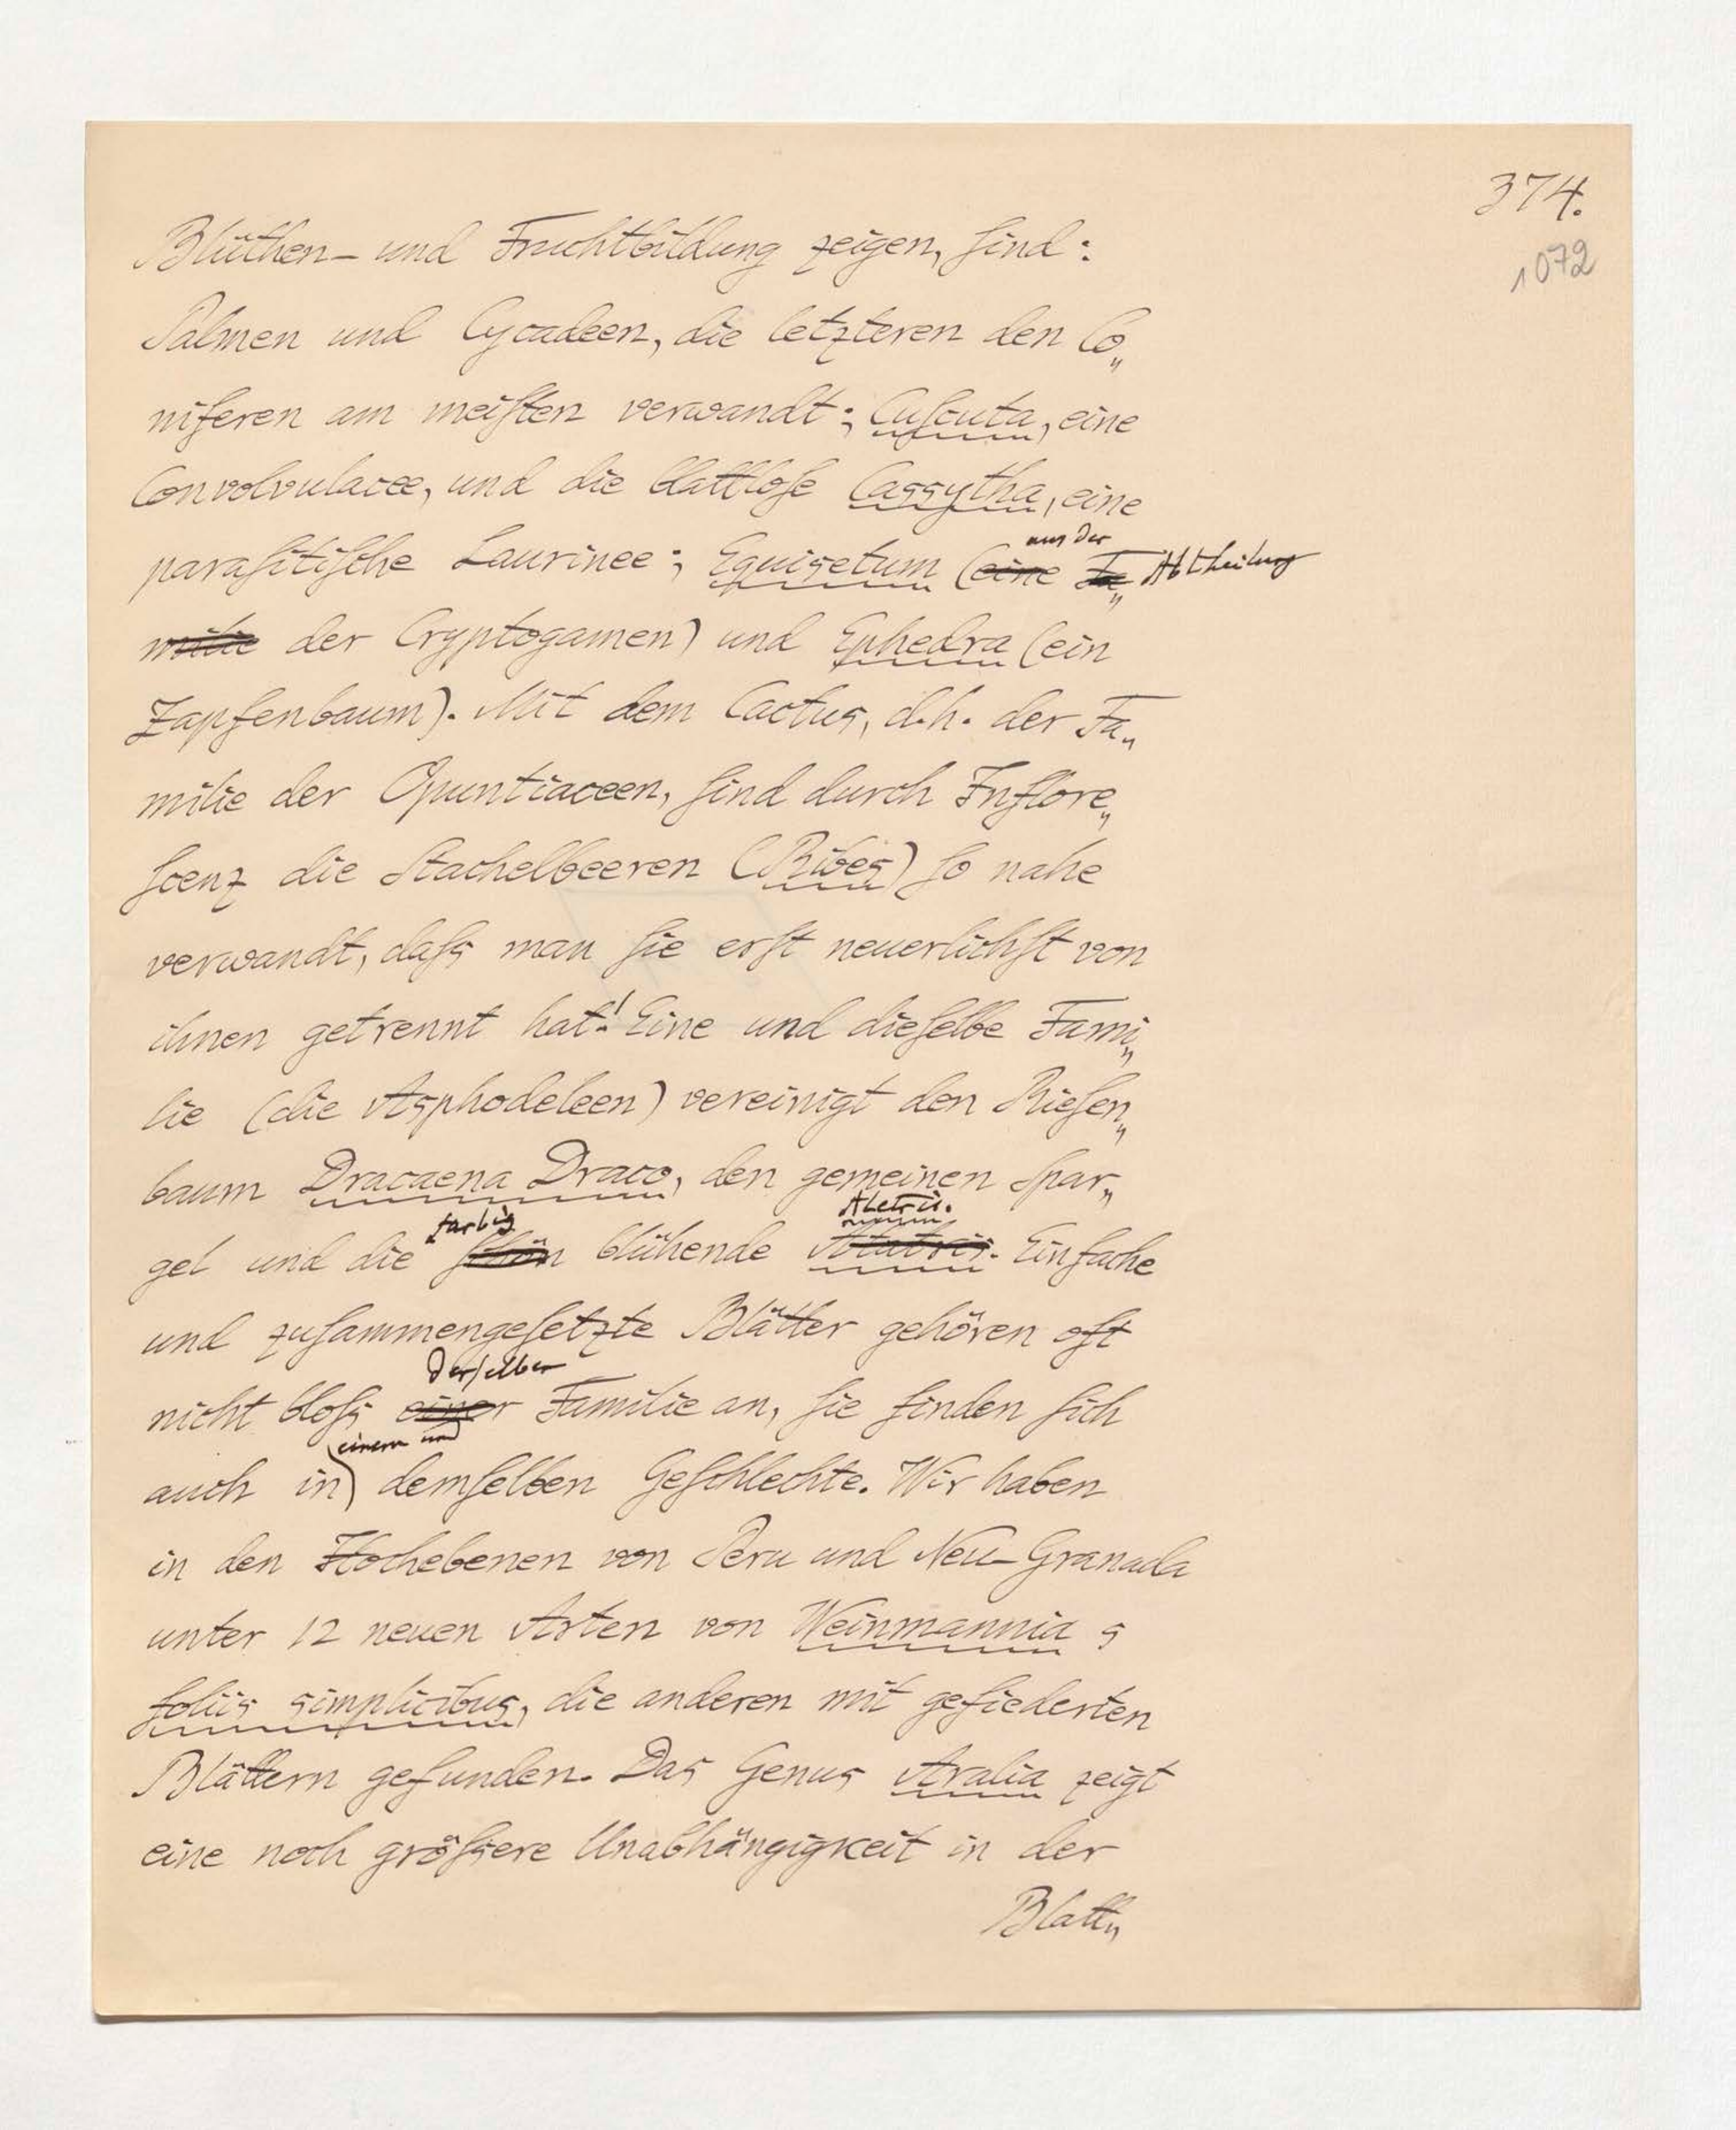 374.
1072
Blüthen- und Fruchtbildung zeigen, ſind:
Palmen und Cycadeen, die letzteren den Co„
niferen am meiſten verwandt; Cuſcuta, eine
Convolvulacee, und die blattloſe Cassytha, eine
aus der
paraſitiſche Laurinee; Equisetum (eine Fa„ Abtheilung
milie der Cryptogamen) und Ephedra (ein
Zapfenbaum). Mit dem Cactus, d.h. der Fa„
milie der Opuntiaceen, ſind durch Inflore„
ſcenz die Stachelbeeren (Ribes) ſo nahe
verwandt, daſs man ſie erſt neuerlichſt von
ihnen getrennt hat! Eine und dieſelbe Fami„
lie (die Asphodeleen) vereinigt den Rieſen„
baum Dracaena Draco, den gemeinen Spar„
farbig Aletris.
gel und die ſchön blühende Einfache
und zuſammengeſetzte Blätter gehören oft
derſelben
nicht bloſs einer Familie an, ſie finden ſich
einem und
auch in demſelben Geſchlechte. Wir haben
in den Hochebenen von Peru und Neu-Granada
unter 12 neuen Arten von Weinmannia 5
foliis simplicibus, die anderen mit gefiederten
Blättern gefunden. Das Genus Aralia zeigt
eine noch gröſsere Unabhängigkeit in der
Blatt„